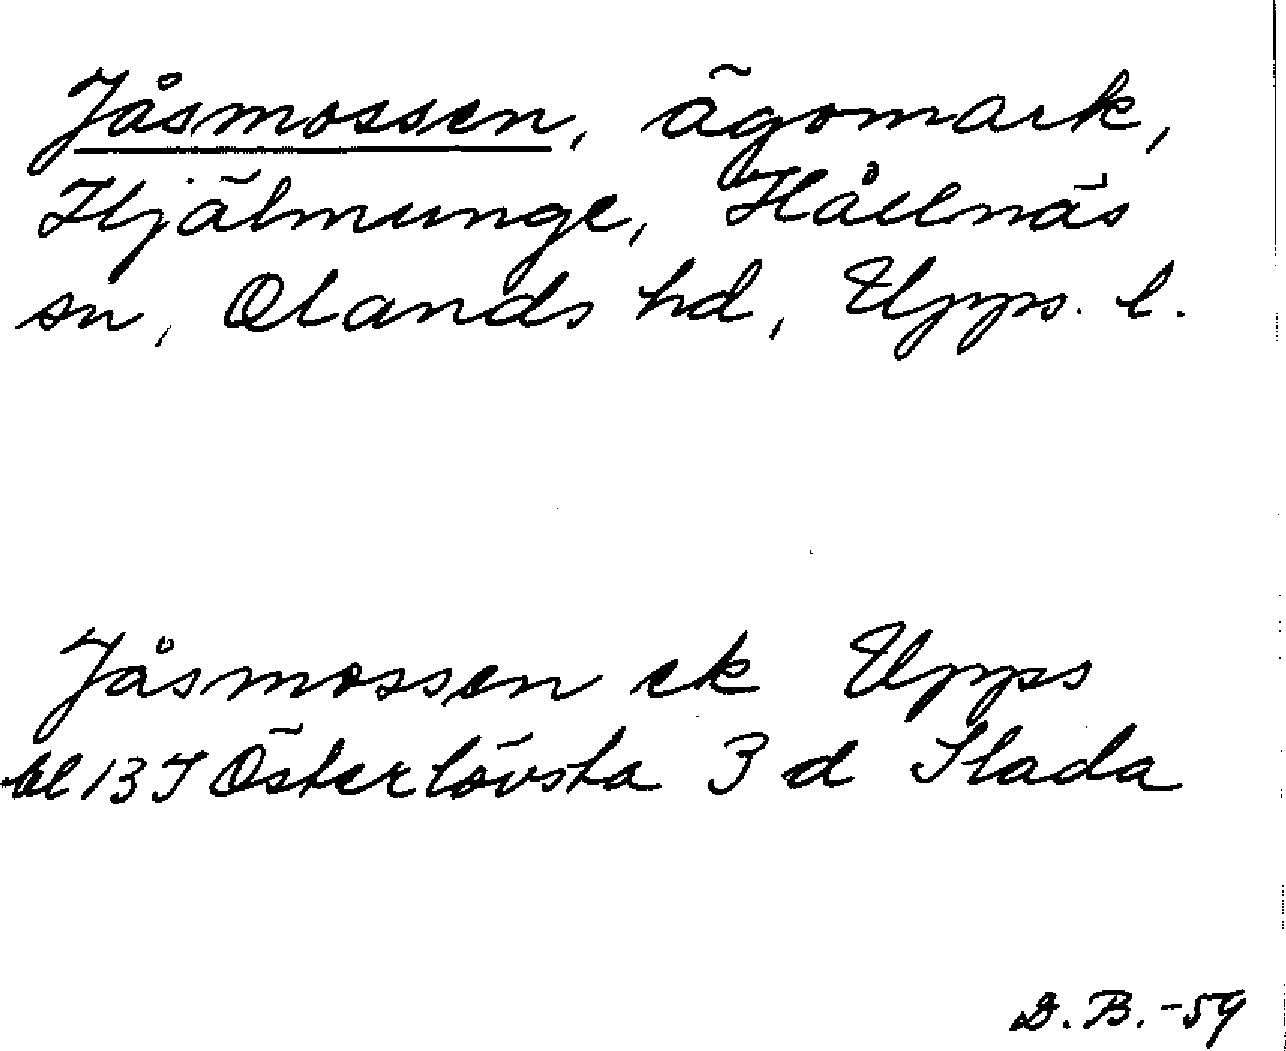 Jåsmossen, ägomark,
Hjälmunge, Hållnäs
sn, Olands hd, Upps. l.
Jåsmossen ek Upps
bl 13 I Österlövsta 3 d Slada
D. B. -59